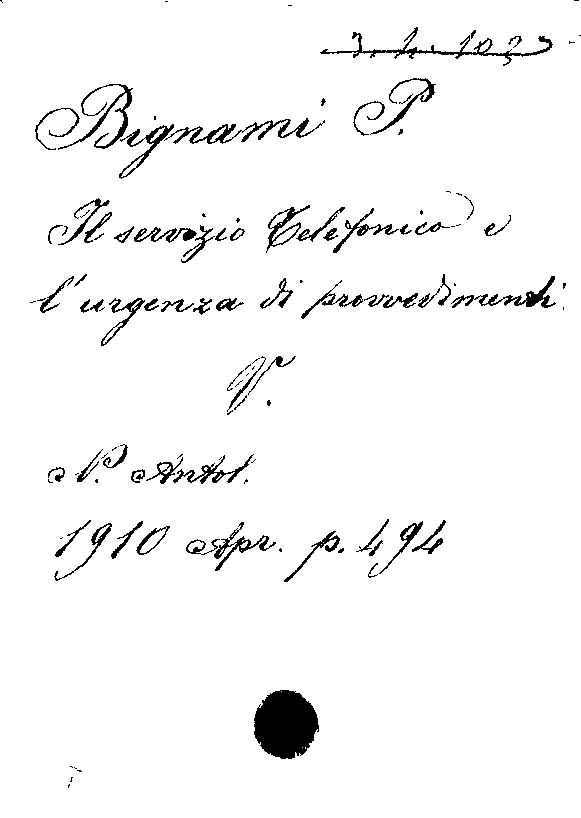 3. h. 102
Bignami P.
Il servizio Telefonico e
l'urgenza di provvedimenti.
V.
N. Antol.
1910 Apr. p. 494